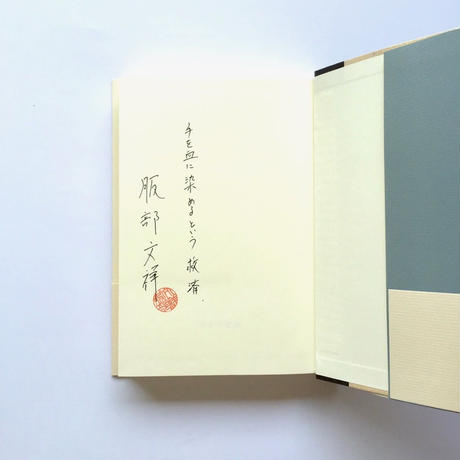 手を血に染めるという救済.
服部文祥